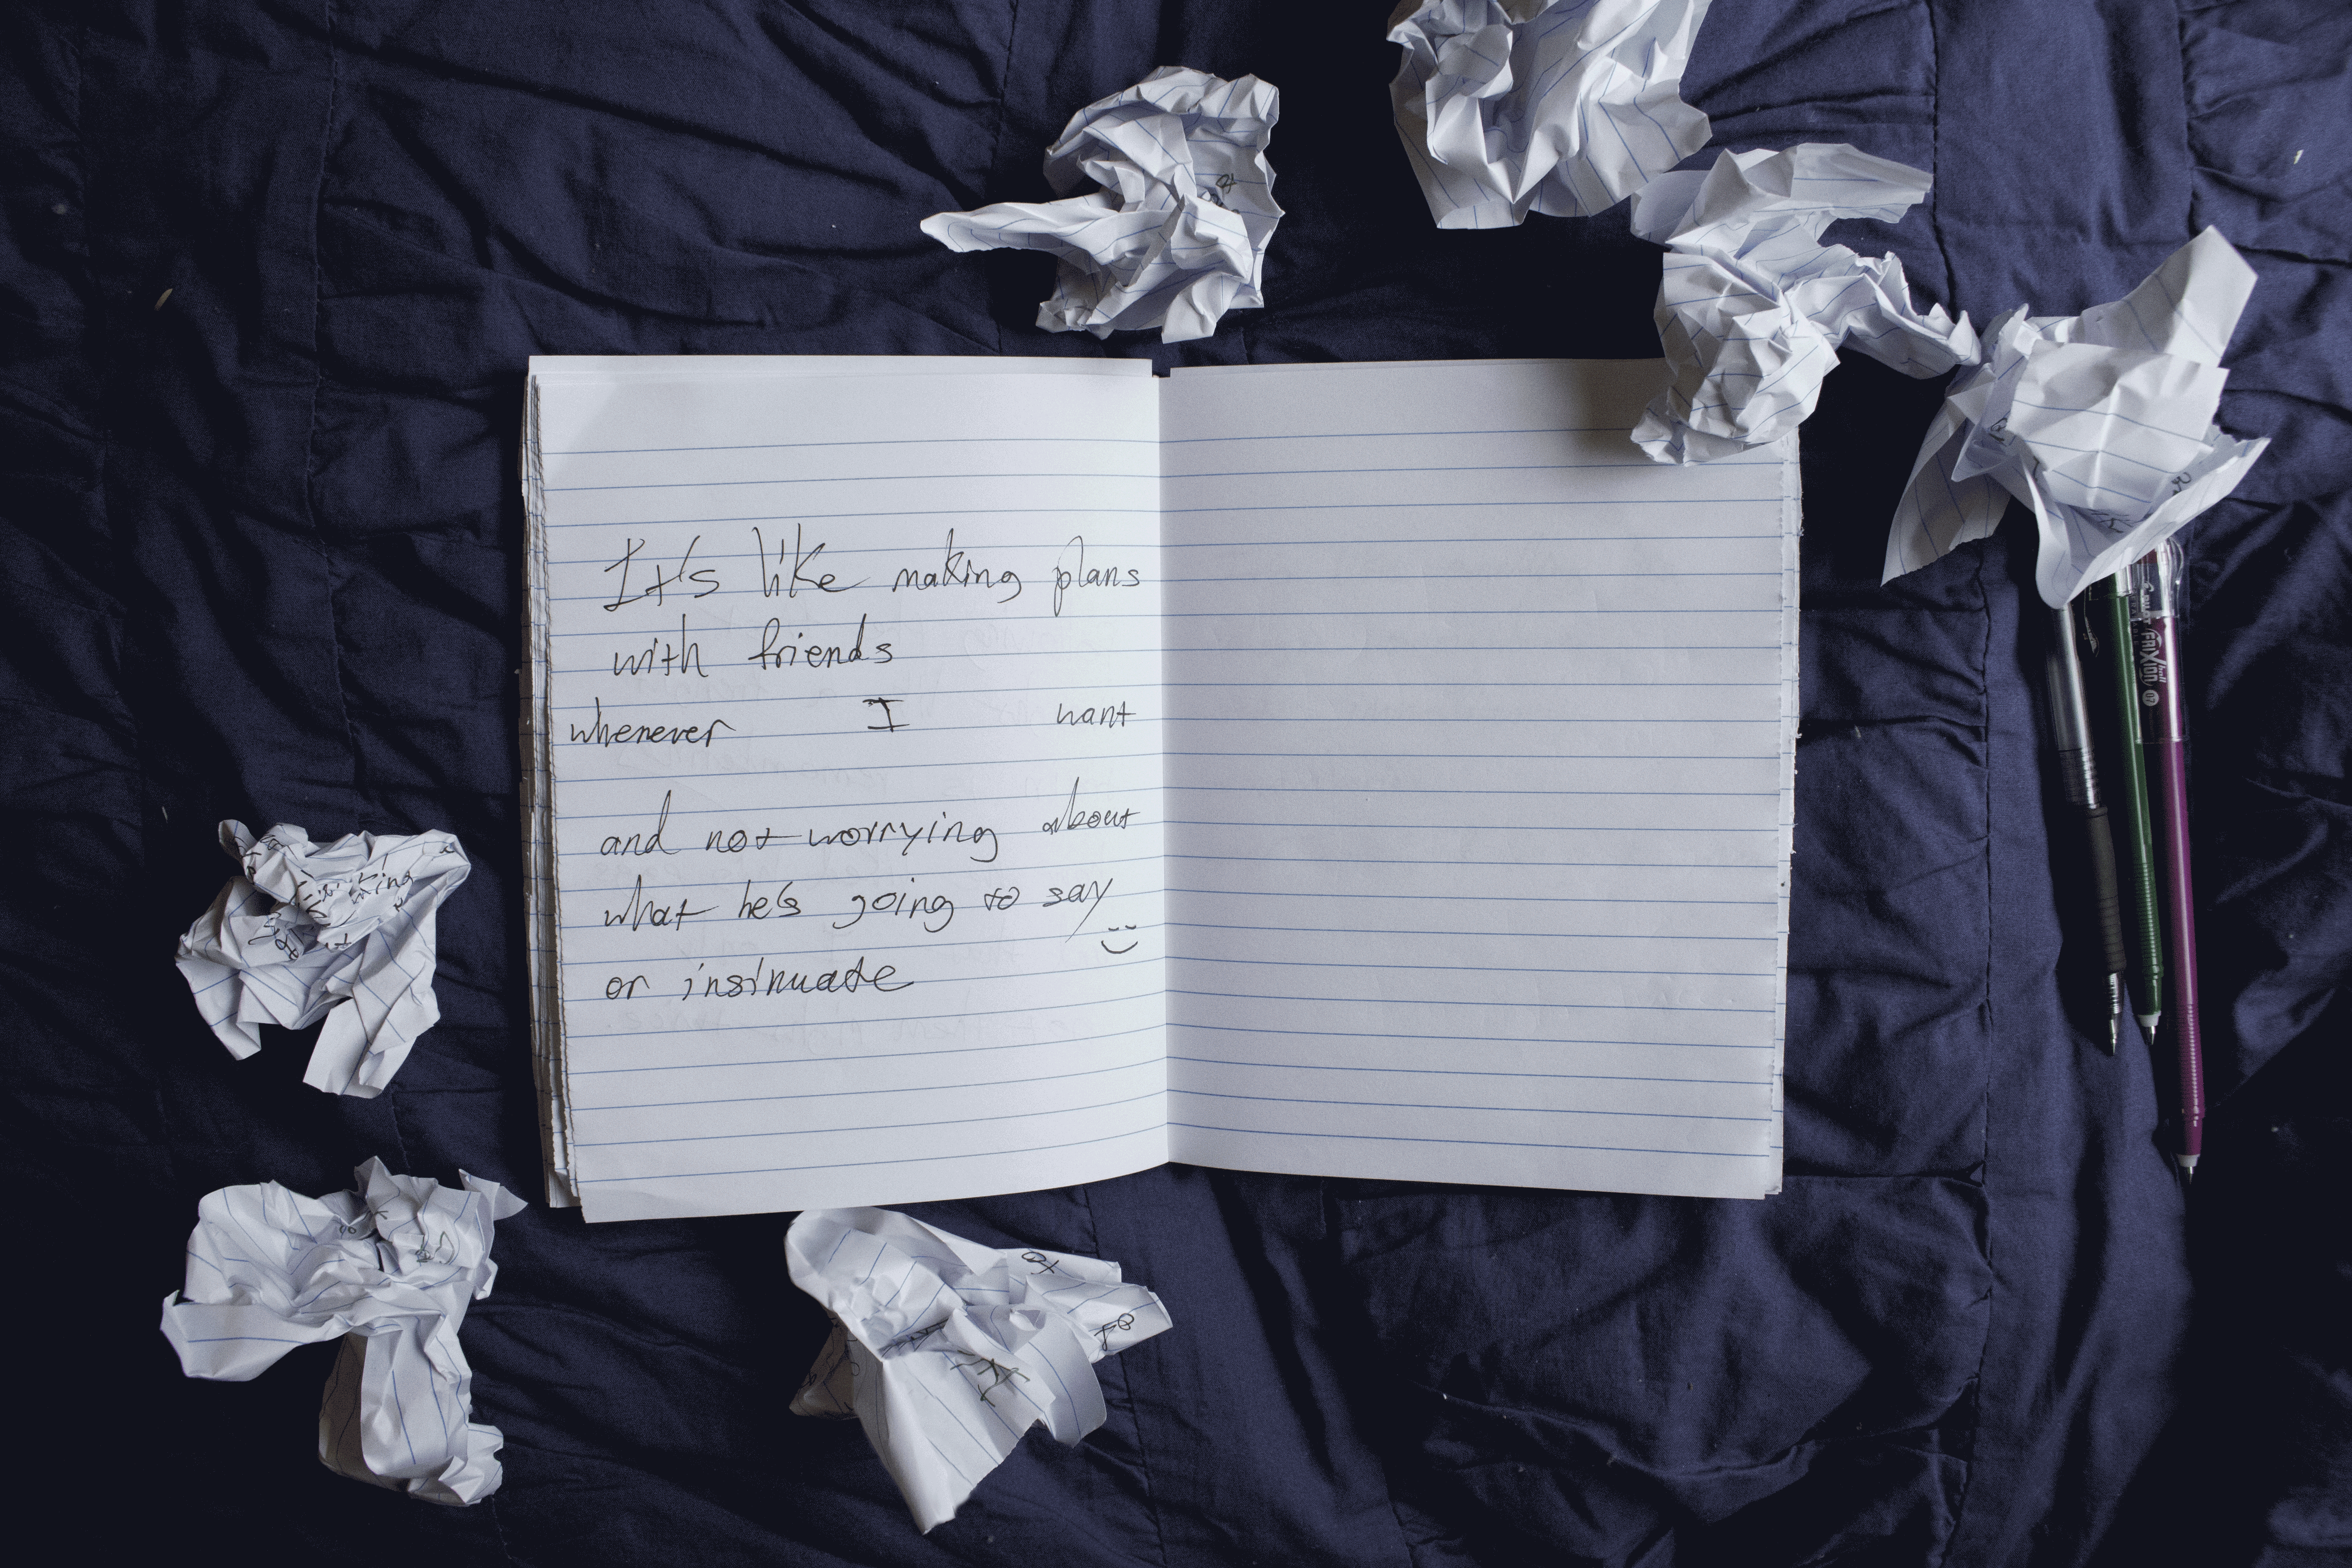 It's like making plans
with friends
whenever I want
and not worrying about
what he's going to say
or insinuate
PILOT
FRIXION ball
07